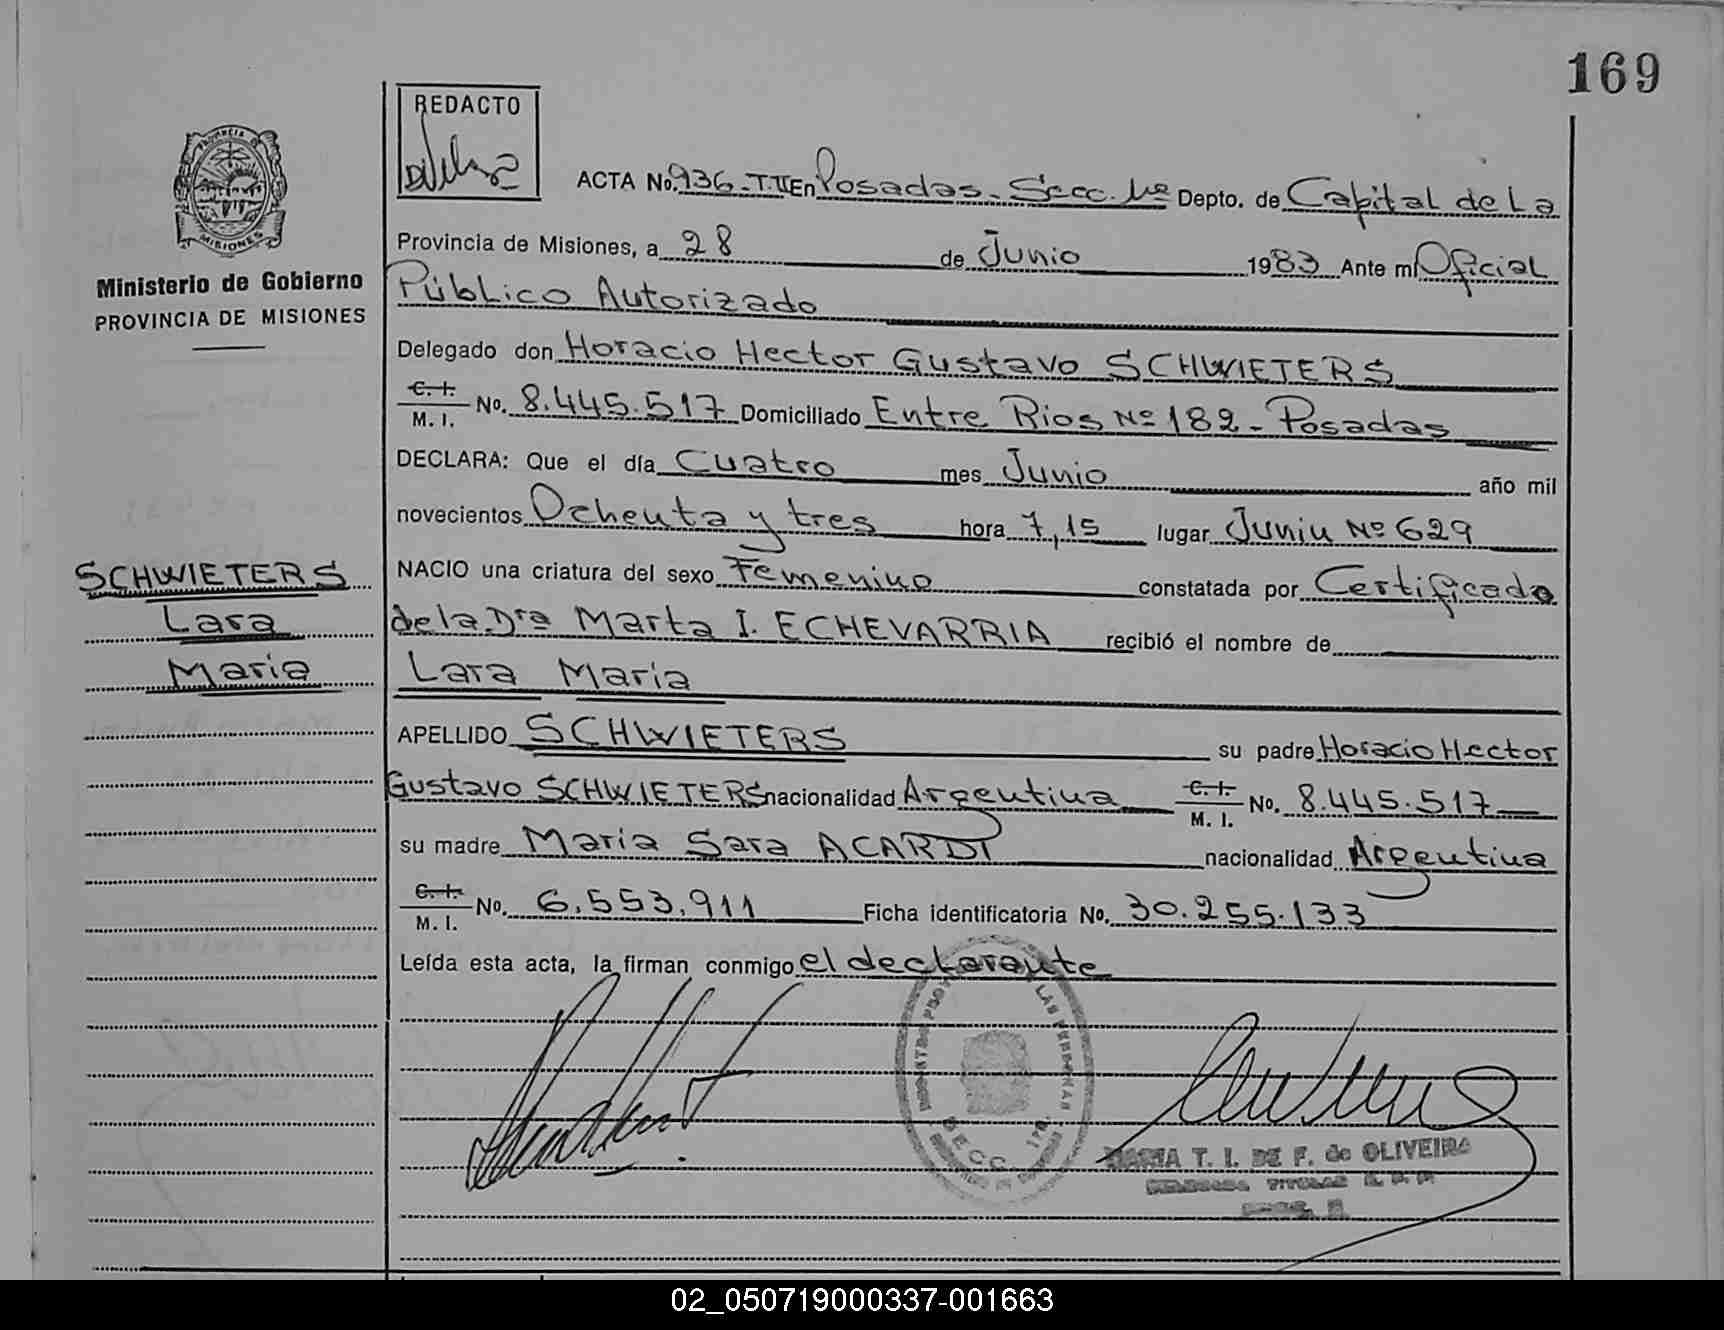 169
REDACTO
PROVINCIA DE
MISIONES
Ministerio de Gobierno
PROVINCIA DE MISIONES
ACTA No. 936-T.II En Posadas - Secc. 1ra Depto. de Capital de La
Provincia de Misiones, a 28 de Junio 1983 Ante mí Oficial
Público Autorizado
Delegado don Horacio Hector Gustavo SCHWIETERS
C. I.
M. I. No. 8.445.517 Domiciliado Entre Rios Nº 182 - Posadas
DECLARA: Que el día Cuatro mes Junio año mil
novecientos Ochenta y tres hora 7,15 lugar Junin Nº 629
SCHWIETERS
Lara
Maria
NACIO una criatura del sexo Femenino constatada por Certificado
de la Dra Marta I. ECHEVARRIA recibió el nombre de
Lara Maria
APELLIDO SCHWIETERS su padre Horacio Hector
Gustavo SCHWIETERS nacionalidad Argentina C. I.
M. I. No. 8.445.517
su madre Maria Sara ACARDI nacionalidad Argentina
C. I.
M. I. No. 6.553.911 Ficha identificatoria No. 30.255.133
Leída esta acta, la firman conmigo el declarante
LAS PERSONAS
SECC. 1ra.
MARIA T. I. DE F. de OLIVEIRA
TITULAR
02_050719000337-001663